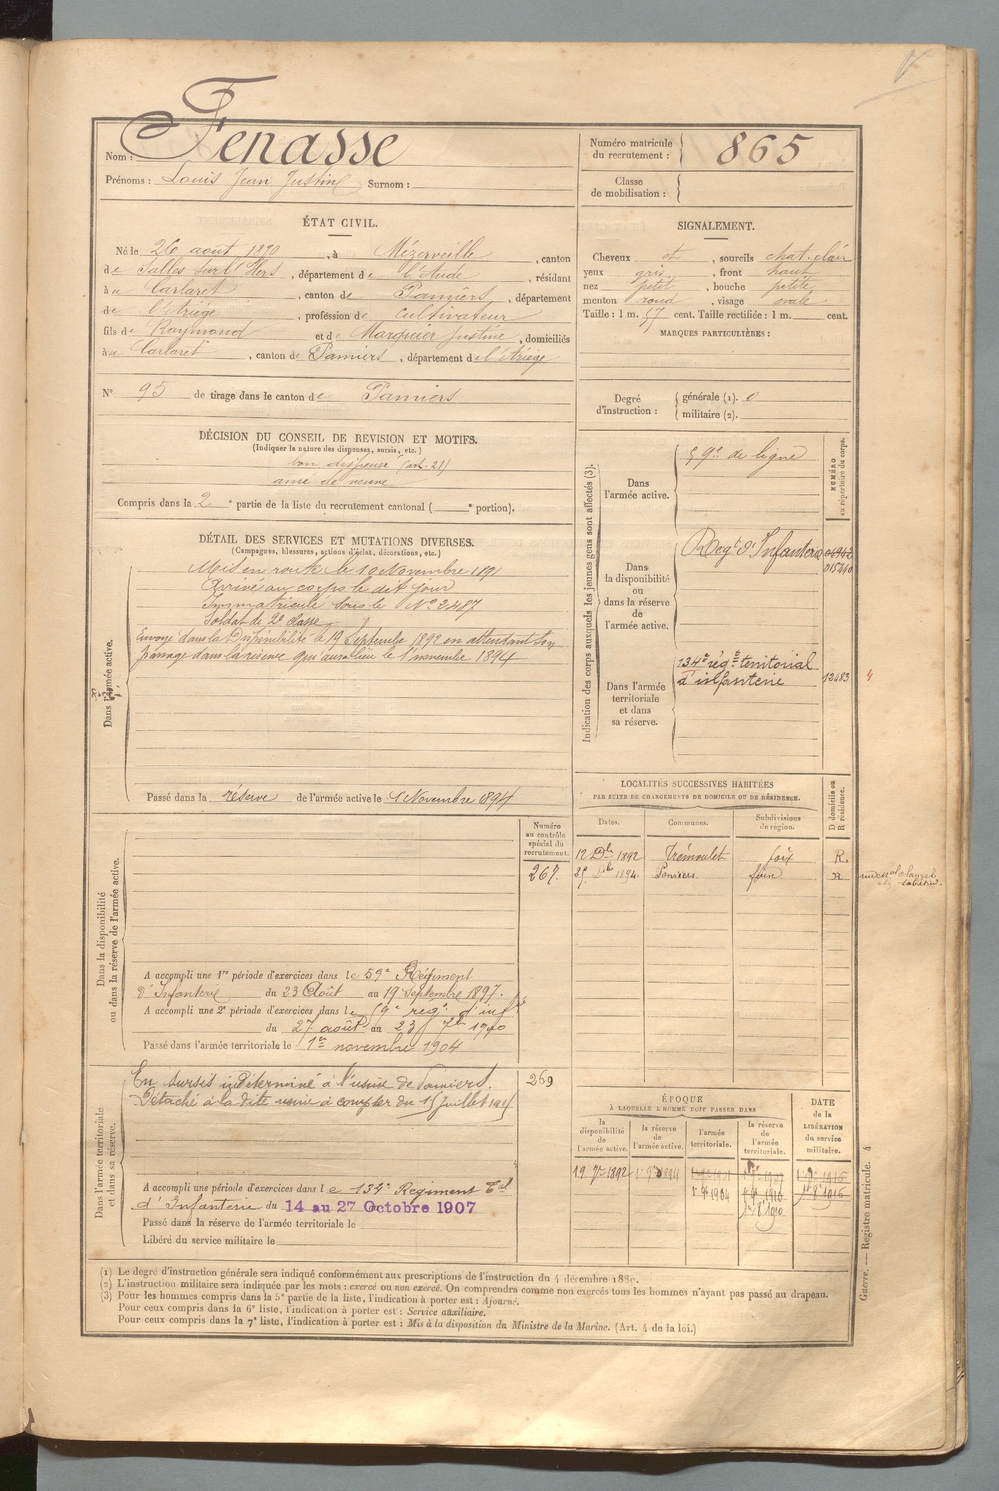 Nom : Fenasse
Prénoms : Louis Jean Justin Surnom :
Numéro matricule du recrutement : 865
Classe de mobilisation :
ÉTAT CIVIL.
Né le 26 août 1870, à Mézerville, canton
de Salles sur l'Hers, département de l'Aude, résidant
à Carlaret, canton de Pamiers, département
de l'Ariège, profession de cultivateur
fils de Raymond et de Marquier Justine, domiciliés
à Carlaret, canton de Pamiers, département de l'Ariège
N° 95 de tirage dans le canton de Pamiers
SIGNALEMENT.
Cheveux et, sourcils chat. clair
yeux gris, front haut
nez petit, bouche petite
menton rond, visage ovale
Taille : 1 m. 57 cent. Taille rectifiée : 1 m. cent.
MARQUES PARTICULIÈRES :
Degré d'instruction : générale (1). 0
militaire (2).
DÉCISION DU CONSEIL DE REVISION ET MOTIFS.
(Indiquer la nature des dispenses, sursis, etc.)
bon dispensé (art. 21)
ainé de veuve
Compris dans la 2e partie de la liste du recrutement cantonal ( e portion).
DÉTAIL DES SERVICES ET MUTATIONS DIVERSES.
(Campagnes, blessures, actions d'éclat, décorations, etc.)
Dans l'armée active.
Mis en route le 10 Novembre 1891
Arrivé au corps le dit jour
Immatriculé sous le N° 2487
Soldat de 2e classe
Envoyé dans la Disponibilité le 19 Septembre 1892 en attendant son
passage dans la réserve qui aura lieu le 1er novembre 1894
Passé dans la réserve de l'armée active le 1er Novembre 1894
Indication des corps auxquels les jeunes gens sont affectés (3).
NUMÉRO au répertoire du corps.
Dans l'armée active.
59e de ligne
Dans la disponibilité ou dans la réserve de l'armée active.
Regt d'Infanterie
015240
Dans l'armée territoriale et dans sa réserve.
134e régt territorial
d'infanterie
12483
4
LOCALITÉS SUCCESSIVES HABITÉES
PAR SUITE DE CHANGEMENTS DE DOMICILE OU DE RÉSIDENCE.
D domicile ou R résidence.
Dates. Communes. Subdivisions de région.
12 Dbre 1892 Trémoulet foix R.
Dbre 1894 Pamiers foix R
Dans la disponibilité ou dans la réserve de l'armée active.
Numéro au contrôle spécial du recrutement.
267.
A accompli une 1re période d'exercices dans le 59e Régiment
d'Infanterie du 23 Août au 19 Septembre 1897.
A accompli une 2e période d'exercices dans le 59e régt d'inf
du 27 août au 23 7bre 1900
Passé dans l'armée territoriale le 1er novembre 1904
Dans l'armée territoriale et dans sa réserve.
En sursis indéterminé à l'usine de Pamiers.
Détaché à la dite usine à compter du 15 Juillet
269
A accompli une période d'exercices dans le 134e Régiment Tal
d'Infanterie du 14 au 27 Octobre 1907
Passé dans la réserve de l'armée territoriale le
Libéré du service militaire le
ÉPOQUE
À LAQUELLE L'HOMME DOIT PASSER DANS
la disponibilité de l'armée active.
la réserve de l'armée active.
l'armée territoriale.
la réserve de l'armée territoriale.
DATE de la LIBÉRATION du service militaire.
19 7bre 1892
1904
1910
1916
(1) Le degré d'instruction générale sera indiqué conformément aux prescriptions de l'instruction du 4 décembre 1889.
(2) L'instruction militaire sera indiquée par les mots : exercé ou non exercé. On comprendra comme non exercés tous les hommes n'ayant pas passé au drapeau.
(3) Pour les hommes compris dans la 5e partie de la liste, l'indication à porter est : Ajourné.
Pour ceux compris dans la 6e liste, l'indication à porter est : Service auxiliaire.
Pour ceux compris dans la 7e liste, l'indication à porter est : Mis à la disposition du Ministre de la Marine. (Art. 4 de la loi.)
Guerre. — Registre matricule. 4